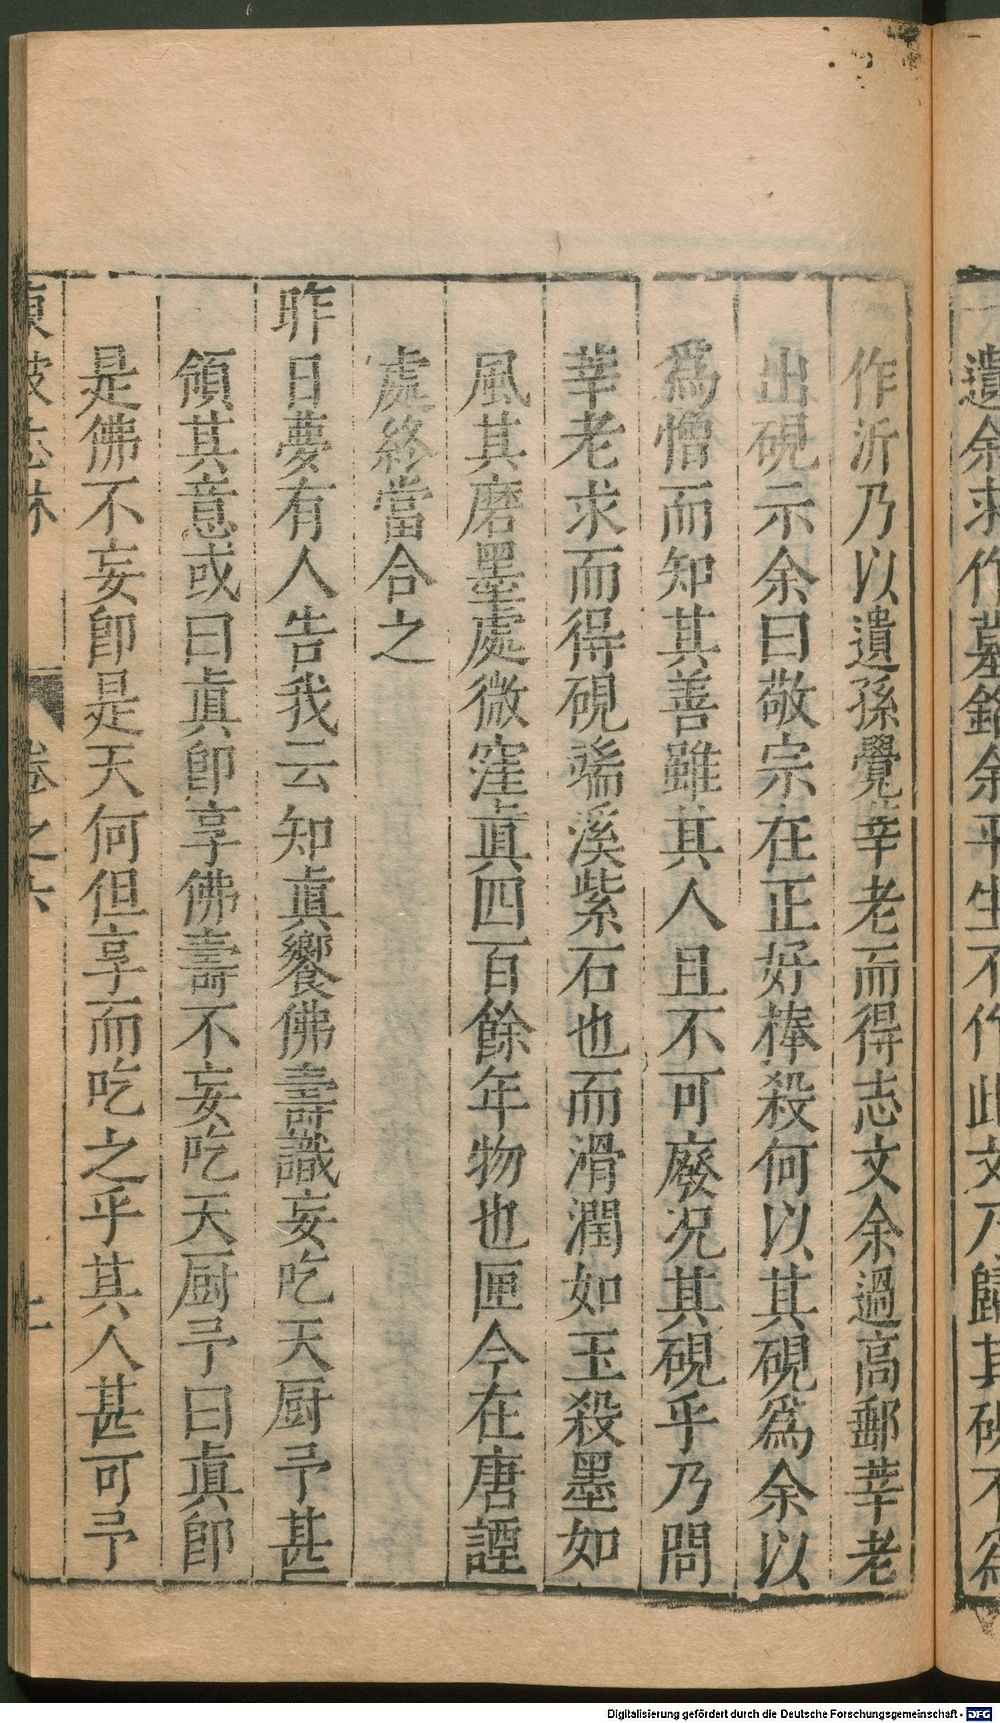 遺余求作墓銘余平生不作此文乃歸其硯不爲
作沂乃以遺孫覺莘老而得志文余過高郵莘老
出硯示余曰敬宗在正好棒殺何以其硯爲余以
爲憎而知其善雖其人且不可廢况其硯乎乃問
莘老求而得硯端溪紫石也而滑潤如玉殺墨如
風其磨墨處微窪眞四百餘年物也匣今在唐諲
處終當合之
昨日夢有人告我云知眞饗佛壽識妄吃天厨予甚
領其意或曰眞卽享佛壽不妄吃天厨予曰眞卽
是佛不妄卽是天何但享而吃之乎其人甚可予
東坡志林 卷之六
Digitalisierung gefördert durch die Deutsche Forschungsgemeinschaft - DFG